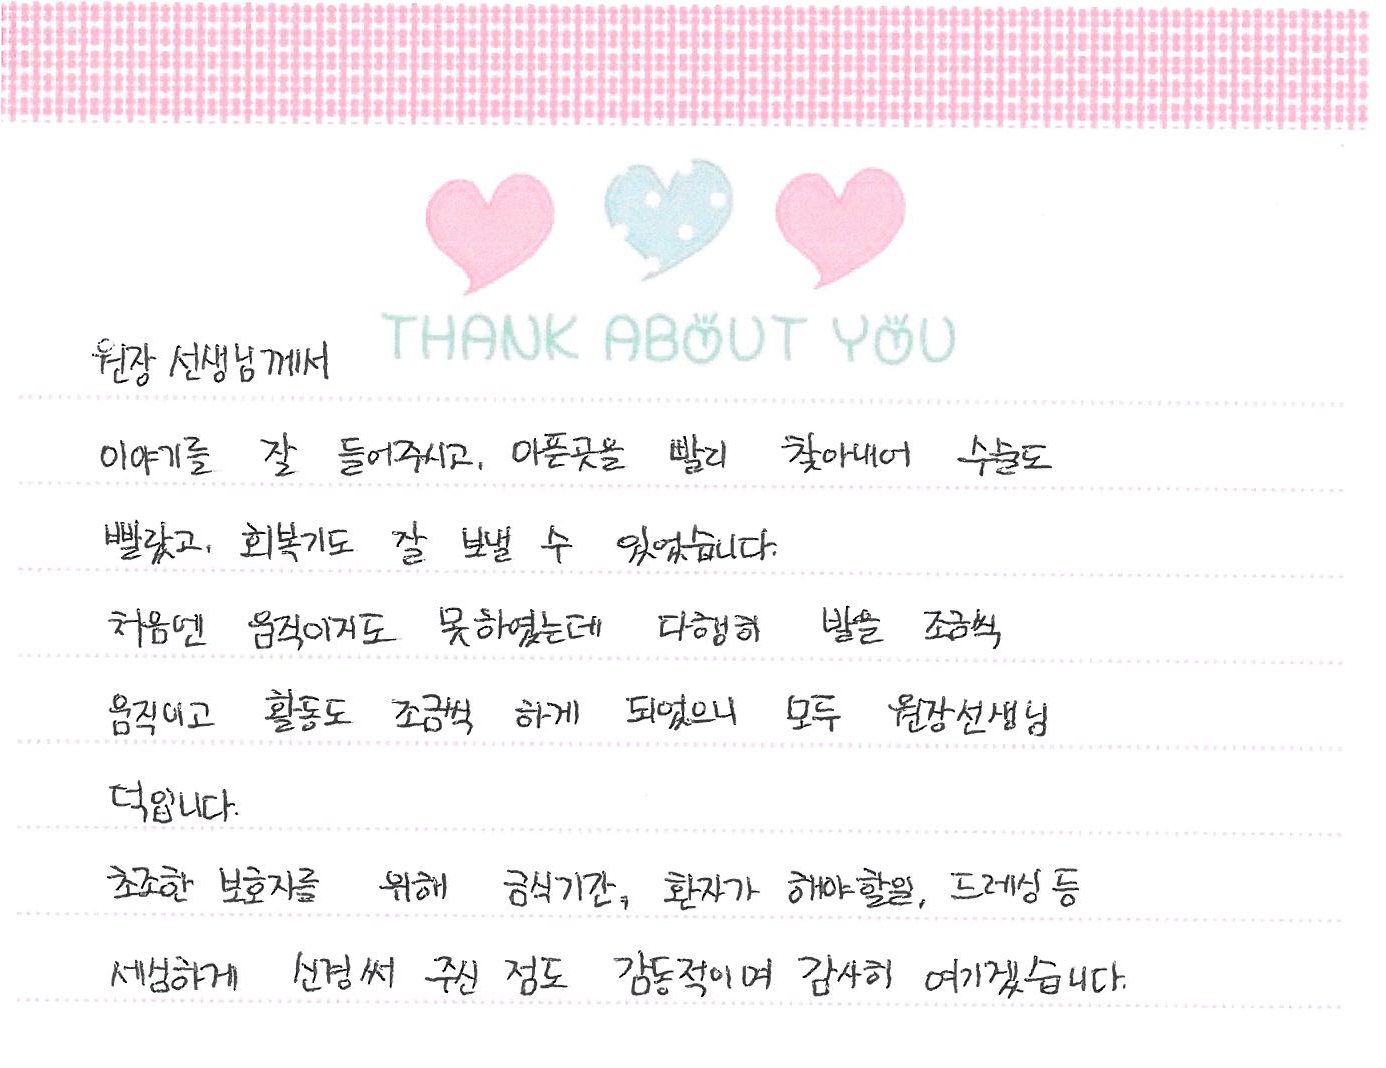 THANK ABOUT YOU
원장 선생님께서
이야기를 잘 들어주시고, 아픈곳을 빨리 찾아내어 수술도
빨랐고, 회복기도 잘 보낼 수 있었습니다.
처음엔 움직이지도 못하였는데 다행히 발을 조금씩
움직이고 활동도 조금씩 하게 되었으니 모두 원장선생님
덕입니다.
초조한 보호자를 위해 금식기간, 환자가 해야할일, 드레싱 등
세심하게 신경써 주신 점도 감동적이며 감사히 여기겠습니다.